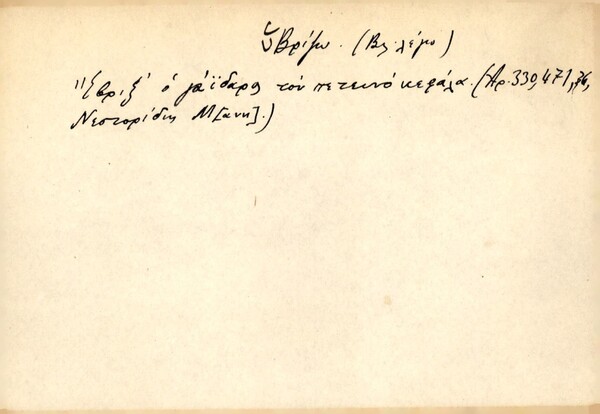 ὑβρίζω. (Βλ. λέμο)
"Ἔβριξ' ὁ γάϊδαρος τὸν πετεινό κεφάλα. (Ἀρ. 330, 471, 76,
Νεστορίδης Μ[ανη].)